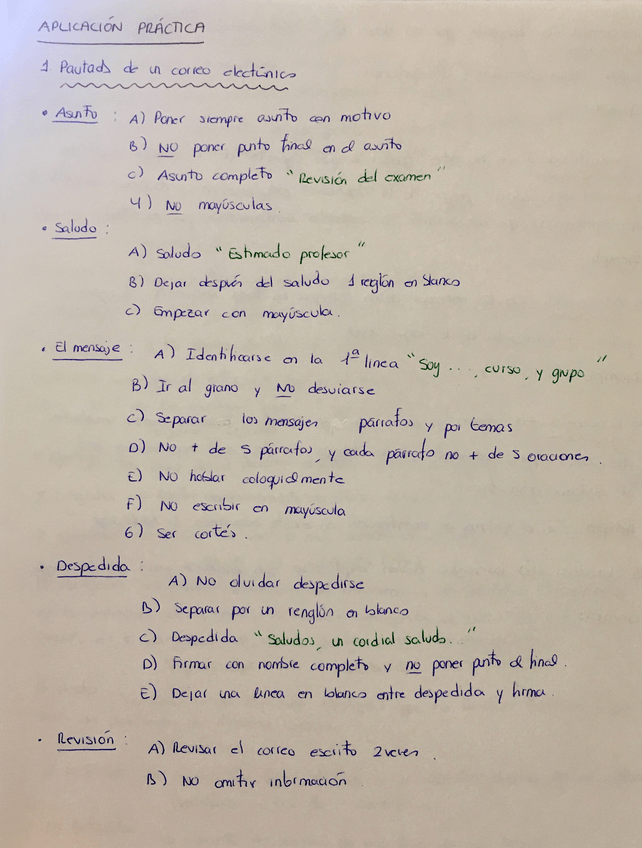 APLICACIÓN PRÁCTICA
1 Pautads de un correo electrónico
• Asunto : A) Poner siempre asunto con motivo
B) NO poner punto final en el asunto
C) Asunto completo "Revisión del examen"
4) NO mayúsculas.
• Saludo :
A) Saludo "Estimado profesor"
B) Dejar después del saludo 1 reglón en blanco
C) Empezar con mayúscula.
• El mensaje : A) Identificarse en la 1ª línea "Soy ..., curso, y grupo"
B) Ir al grano y NO desviarse
C) Separar los mensajes párrafos y por temas
D) No + de 5 párrafos, y cada párrafo no + de 5 oraciones.
E) NO hablar coloquialmente
F) NO escribir en mayúscula
6) Ser cortés.
• Despedida :
A) No olvidar despedirse
B) Separar por un renglón en blanco
C) Despedida "Saludos, un cordial saludo..."
D) Firmar con nombre completo y no poner punto al final.
E) Dejar una línea en blanco entre despedida y firma.
• Revisión : A) Revisar el correo escrito 2 veces.
B) NO omitir información